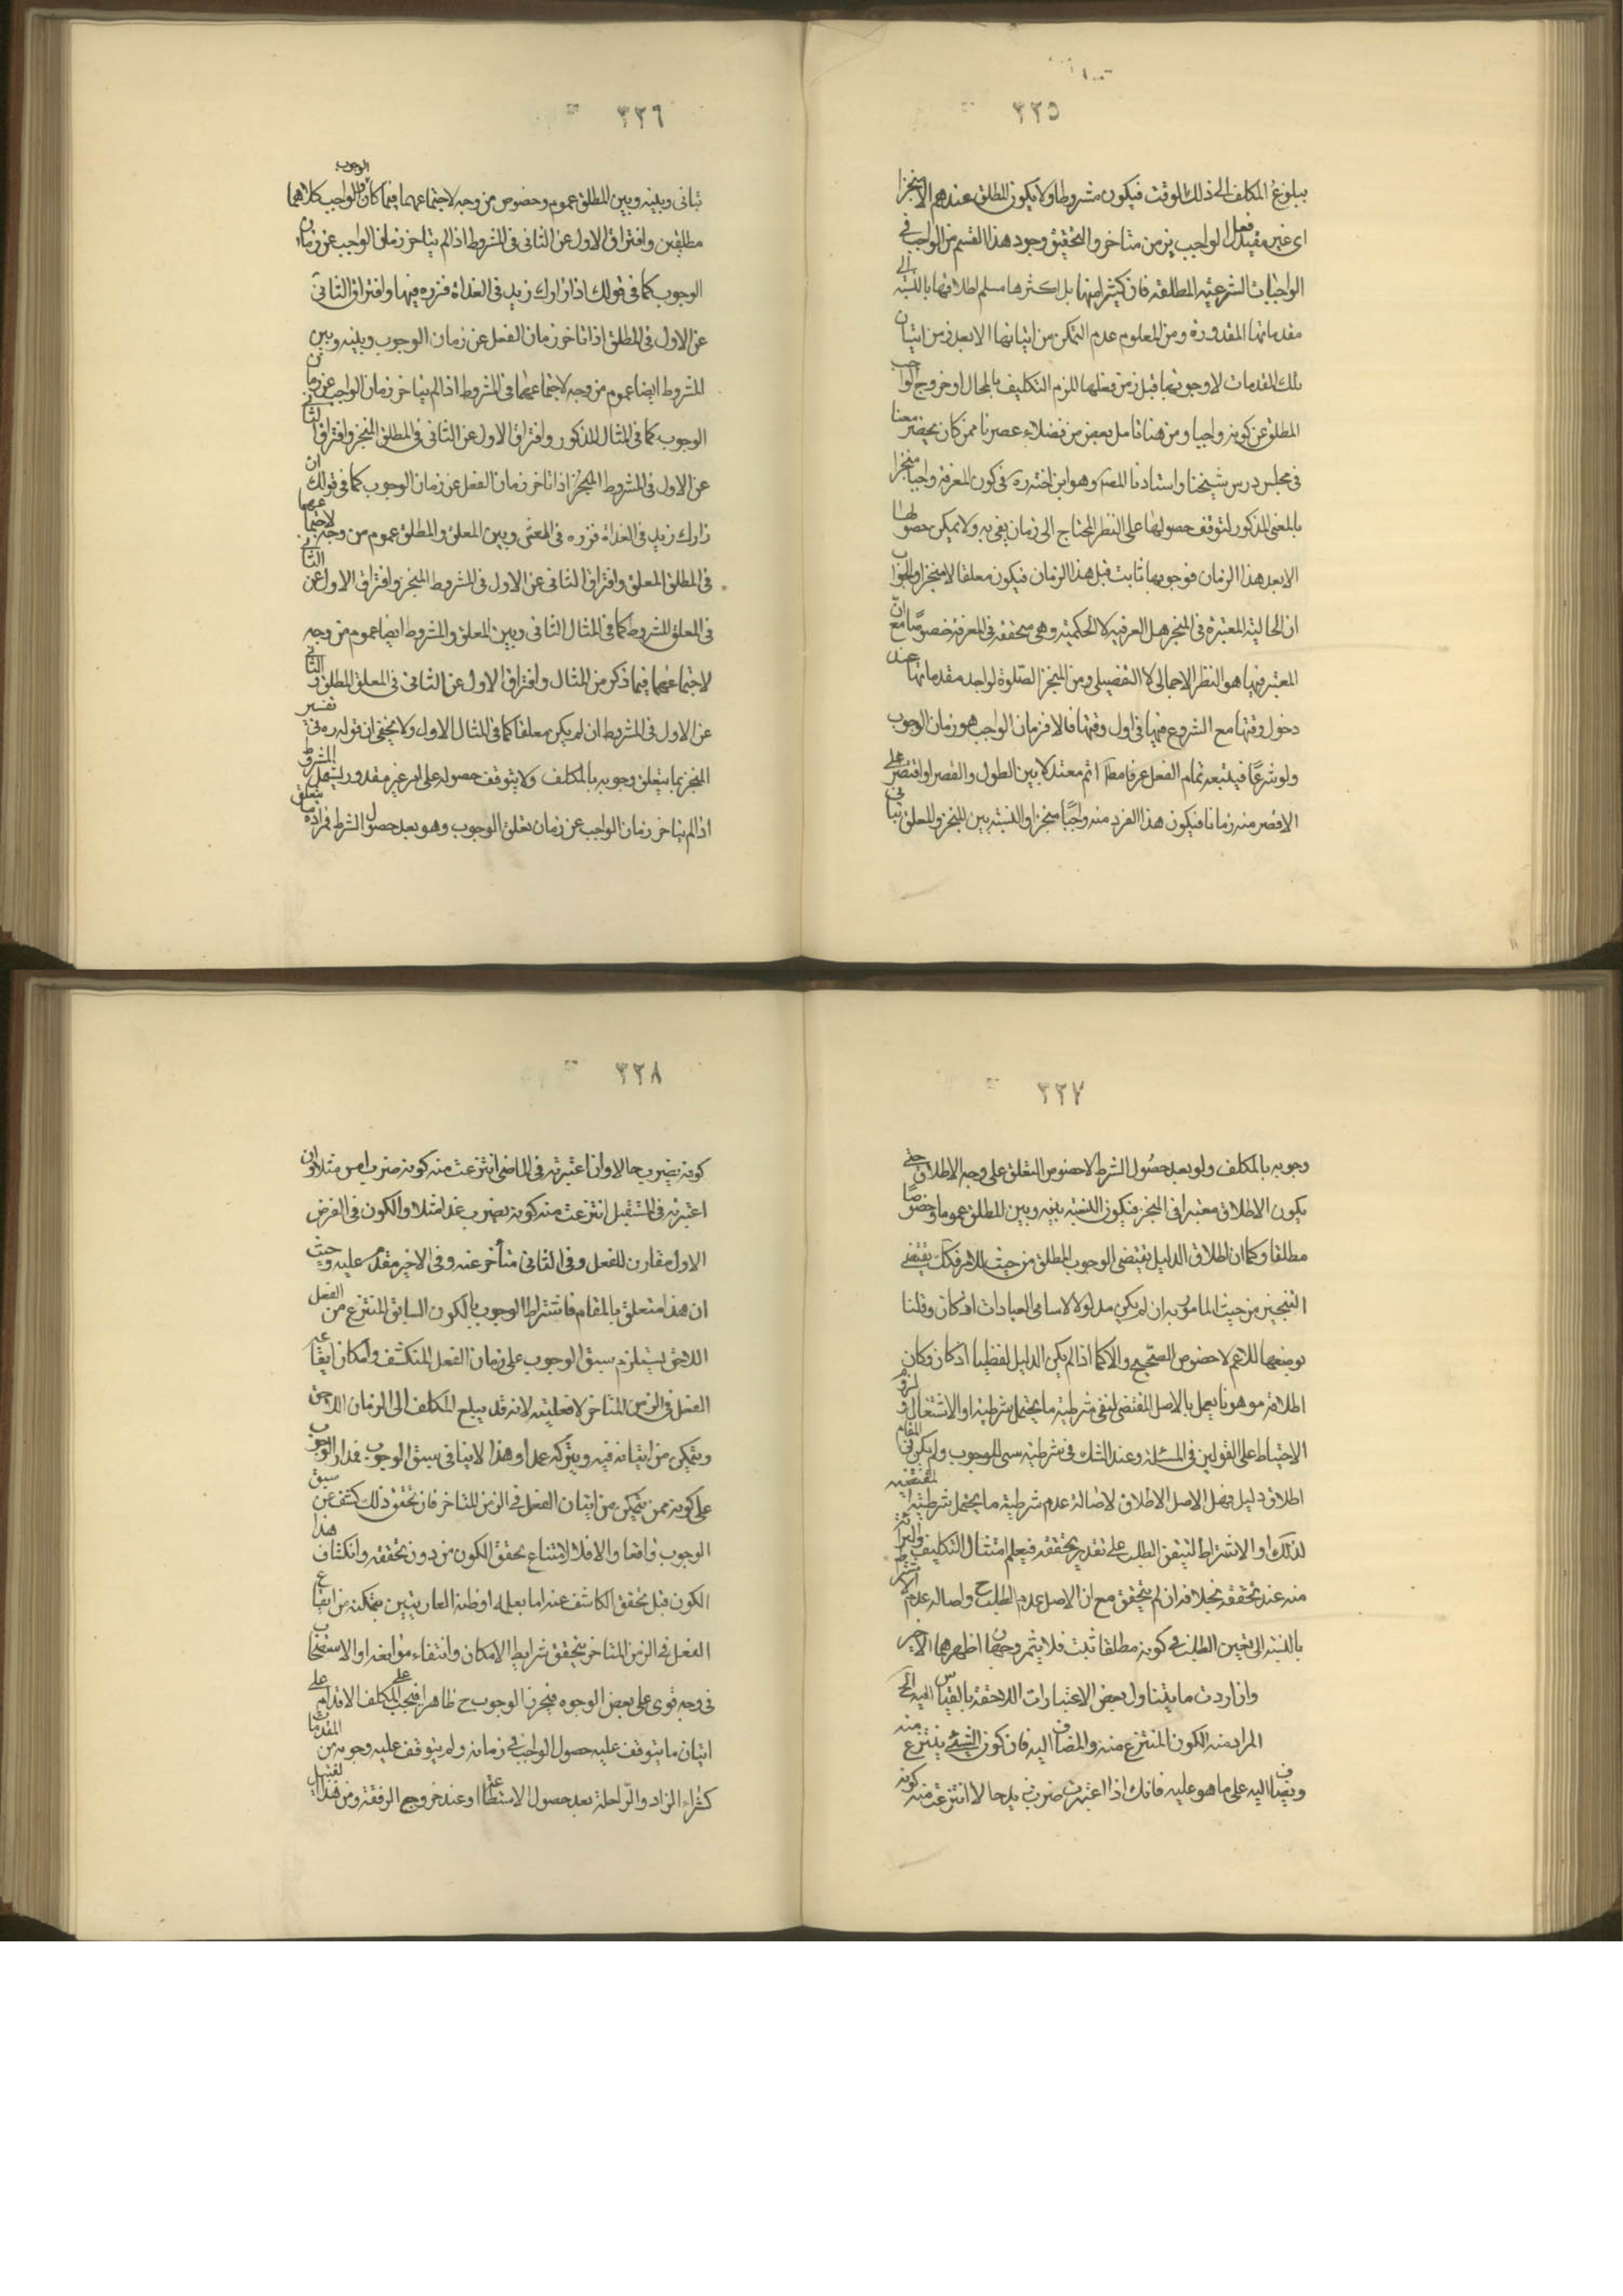 ٣٢٥
ببلوغ المكلف الى ذلك الوقت فيكون مشروطا ولا يكون المطلق عندهم الا منجزا
اى غير مقيد فعل الواجب بزمن متاخر والتحقيق وجود هذا القسم من الواجب فى
الواجبات الشرعيه المطلقه فان كثيرا منها بل اكثرها مسلم اطلاقها بالنسبه الى
مقدماتها المقدوره ومن المعلوم عدم التمكن من اتيانها الا بعد زمن اتيان
تلك المقدمات لا وجوبها قبل زمن فعلها للزم التكليف بالمحال او خروج الواجب
المطلق عن كونه واجبا ومن هنا تامل بعض من فضلاء عصرنا ممن كان يحضر معنا
فى مجلس درس شيخنا واستادنا المصه وهو ابن اخته ره فى كون المعرفه واجبا منجزا
بالمعنى المذكور لتوقف حصولها على النظر المحتاج الى زمان يفى به ولا يمكن حصولها
الا بعد هذا الزمان فوجوبها ثابت قبل هذا الزمان فيكون معلقا لا منجزا والجواب
ان الحاليه المعتبرة فى المنجز هل العرفيه لا الحكميه وهى متحققه فى المعرفه خصوصًا مع ان
المعتبر فيها هو النظر الاجمالى لا التفصيلى ومن المنجز الصلوة لواجد مقدماتها عند
دخول وقتها مع الشروع فيها فى اول وقتها فالافزمان الواجب هو زمان الوجوب
ولو شرعًا فيلتبعه تمام الفعل عرفا مط اتم معتدلا بين الطول والقصر او اقتصر على
الاقصر منه زمانا فيكون هذا الفرد منه واجبًا منجزا والنسبه بين المنجز والمعلق تبا
ين
٣٢٦
تبانى وبينه وبين المطلق عموم وخصوص من وجه لاجتماعهما فيما كان الوجوب والواجب كلاهما
مطلقين وافتراق الاول عن الثانى فى المشروط اذا لم يتاخر زمان الواجب عن زمان
الوجوب كما فى قولك اذا زارك زيد فى الغداة فزره فيها وافتراق الثانى
عن الاول فى المطلق اذا تاخر زمان الفعل عن زمان الوجوب وبينه وبين
المشروط ايضا عموم من وجه لاجتماعهما فى المشروط اذا لم يتاخر زمان الواجب عن زمان
الوجوب كما فى المثال المذكور وافتراق الاول عن الثانى فى المطلق المنجز وافتراق الثانى
عن الاول فى المشروط المنجز اذا تاخر زمان الفعل عن زمان الوجوب كما فى قولك ان
زارك زيد فى الغداة فزره فى العشى وبين المعلق والمطلق عموم من وجه لاجتماعهما
فى المطلق المعلق وافتراق الثانى عن الاول فى المشروط المنجز وافتراق الاول عن الثانى
فى المعلق المشروط كما فى المثال الثانى وبين المعلق والمشروط ايضا عموم من وجه
لاجتماعهما فيما ذكر من المثال وافتراق الاول عن الثانى فى المعلق المطلق والثانى
عن الاول فى المشروط ان لم يكن معلقا كما فى المثال الاول ولا يخفى ان قوله ره فى تفسير
المنجز بما يتعلق وجوبه بالمكلف ولا يتوقف حصوله على امر غير مقدور يشمل المشروط
اذا لم يتاخر زمان الواجب عن زمان تعلق الوجوب وهو بعد حصول الشرط فمراده بما يتعلق
٣٢٧
وجوبه بالمكلف ولو بعد حصُول الشرط لا خصوص التعلق على وجه الاطلاق حتى
يكون الاطلاق معتبرا فى المنجز فيكون النسبه بينه وبين المطلق عموما وخصوصًا
مطلقا وكما ان اطلاق الدليل يقتضى الوجوب المطلق من حيث الامر فكك يقتضى
التنجيز من حيث المامور به ان لم يكن مدلولا لاسامى العبادات اذ كان وقلنا
بوضعها للاعم لا خصوص الصحيح والا كما اذا لم يكن الدليل لفظيا اذ كان وكان
اطلاقه موهونا يعمل بالاصل المقتضى لنفى شرطيه ما يحتمل شرطيته او الاشتغال ولزوم
الاحتياط على القولين فى المسئله وعند الشك فى شرطيه شى للوجوب ولم يكن فى المقام
اطلاق دليل فهل الاصل الاطلاق لاصالة عدم شرطية ما يحتمل شرطيته المقتضيه
لذلك او الاشتراط لتيقن الطلب على تقدير تحققه فيعلم امتثال التكليف والبرائة
منه عند تحققه بخلافه ان لم يتحقق مع ان الاصل عدم الطلب ح واصاله عدم الاشتراط
بالنسبه الى تعيين الطلب فى كونه مطلقا ثبت فلا يثمر وجهان اظهرهما الاخير
وان اردت ما يتناول بعض الاعتبارات اللاحقه بالقياس اليه الخ
المراد منه الكون المنتزع منه والمضاف اليه فان كون الشىء ينتزع منه
ويضاف اليه على ما هو عليه فانك اذا اعتبرت ضرب زيد حالا انتزعت منه كونه
٣٢٨
كونه يضرب حالا وان اعتبرته فى الماضى انتزعت منه كونه ضرب امس مثلا وان
اعتبرته فى المستقبل انتزعت منه كونه يضرب غدا مثلا والكون فى الفرض
الاول مقارن للفعل وفى الثانى متأخر عنه وفى الاخير مقدم عليه وحيث
ان هذا متعلق بالمقام فاشتراط الوجوب بالكون السابق المنتزع من الفعل
اللاحق يستلزم سبق الوجوب على زمان الفعل المنكشف وامكان ايقاع
الفعل فى الزمن المتاخر لا فعليته لانه قد يبلع المكلف الى الزمان اللاحق
ويتمكن من اتيانه فيه ويتركه عمدا وهذا لا ينافى سبق الوجوب فمدار الوجوب
على كونه ممن يتمكن من اتيان الفعل فى الزمن المتاخر فان تحقق ذلك كشف عن سبق
الوجوب واقعا والا فلا لامتناع تحقق الكون من دون تحققه وانكشاف هذا
الكون قبل تحقق الكاشف عنه اما بعلمه او ظنه العاديتين بتمكنه من ايقاع
الفعل فى الزمن المتاخر بتحقق شرايط الامكان وانتفاء موانعه او الاستصحاب
فى وجه قوى على بعض الوجوه فيحرز الوجوب ح ظاهرا فيجب على المكلف الاقدام على
اتيان ما يتوقف عليه حصول الواجب فى زمانه ولم يتوقف عليه وجوبه من المقدمات
كشراء الزاد والرّاحلة بعد حصول الاستطاعة او عند خروج الرفقة ومن هذا القبيل